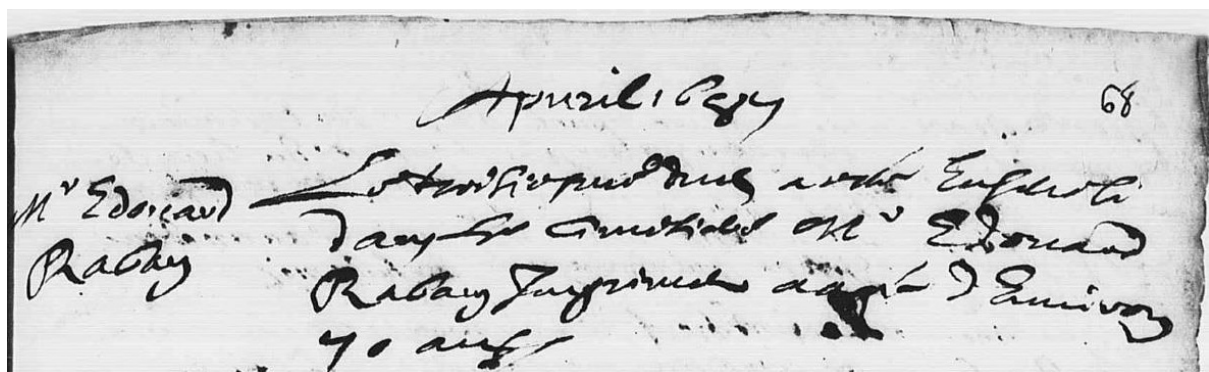 Apvril 1657
68
Mr Edouard
Raban
Le troisiesme dud a esté Ensepveli
dans le Cimetiere Mr Edouard
Raban Imprimeur aagé d'Environ
70 ans